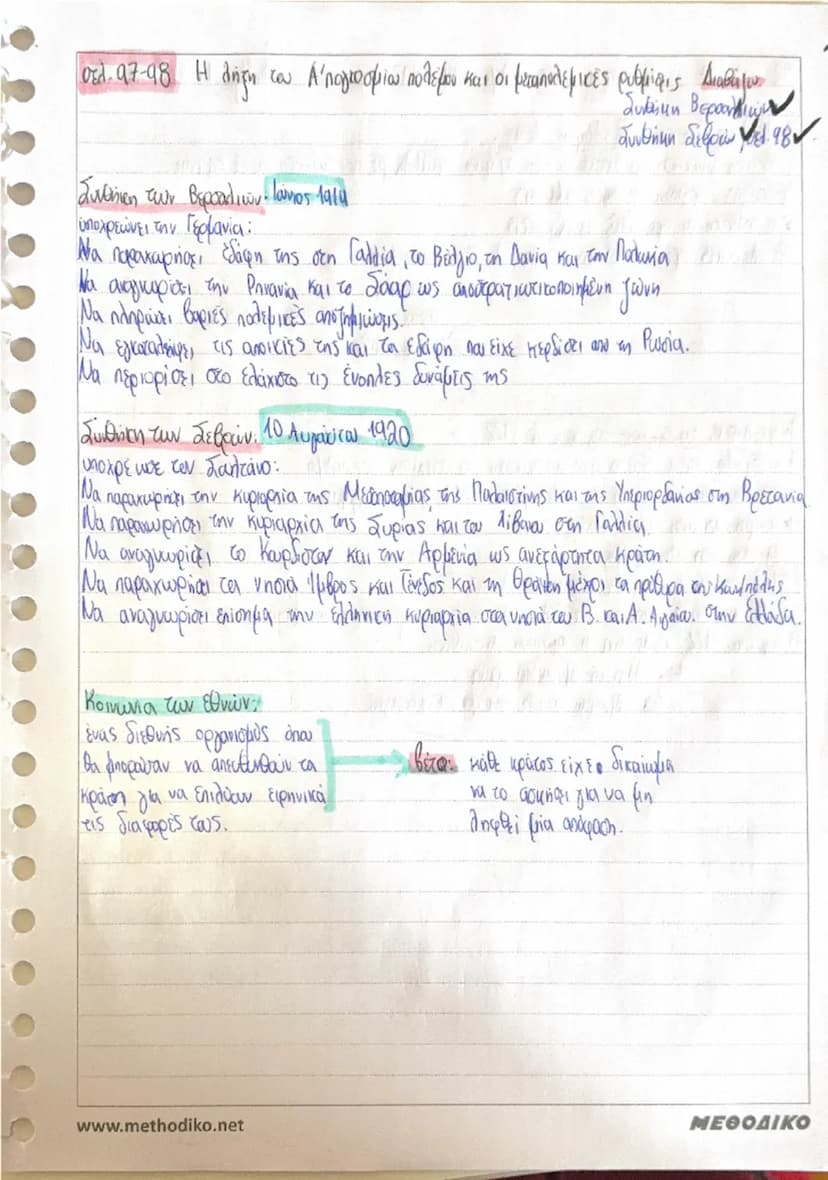 σελ. 97-98 Η λήξη του Α' παγκοσμίου πολέμου και οι μεταπολεμικές ρυθμίσεις Διαβάζω
Συνθήκη Βερσαλλιών ✓
Συνθήκη Σεβρών ✓ σελ. 98 ✓
Συνθήκη των Βερσαλλιών: Ιούνιος 1919
υποχρεώνει την Γερμανία:
Να παραχωρήσει εδάφη της στη Γαλλία, το Βέλγιο, τη Δανία και την Πολωνία
Να αναγνωρίσει την Ρηνανία και το Σάαρ ως αποστρατιωτικοποιημένη ζώνη
Να πληρώσει βαριές πολεμικές αποζημιώσεις.
Να εγκαταλήψει τις αποικίες της και τα εδάφη που είχε κερδίσει από τη Ρωσία.
Να περιορίσει στο ελάχιστο τις ένοπλες δυνάμεις της
Συνθήκη των Σεβρών: 10 Αυγούστου 1920
υποχρέωσε τον Σουλτάνο:
Να παραχωρήσει την κυριαρχία της Μεσοποταμίας, της Παλαιστίνης και της Υπεριορδανίας στη Βρετανία
Να παραχωρήσει την κυριαρχία της Συρίας και του Λιβάνου στη Γαλλία.
Να αναγνωρίσει το Κουρδιστάν και την Αρμενία ως ανεξάρτητα κράτη.
Να παραχωρήσει τα νησιά Ίμβρος και Τένεδος και τη Θράκη μέχρι τα πρόθυρα της Κων/πολης
Να αναγνωρίσει επίσημα την ελληνική κυριαρχία στα νησιά του Β. και Α. Αιγαίου. στην Ελλάδα.
Κοινωνία των εθνών:
ένας διεθνής οργανισμός όπου
θα μπορούσαν να απευθυνθούν τα
κράτη για να επιλύουν ειρηνικά
τις διαφορές τους.
βέτο: κάθε κράτος είχε δικαίωμα
να το ασκήσει για να μη
ληφθεί μία απόφαση.
www.methodiko.net
ΜΕΘΟΔΙΚΟ